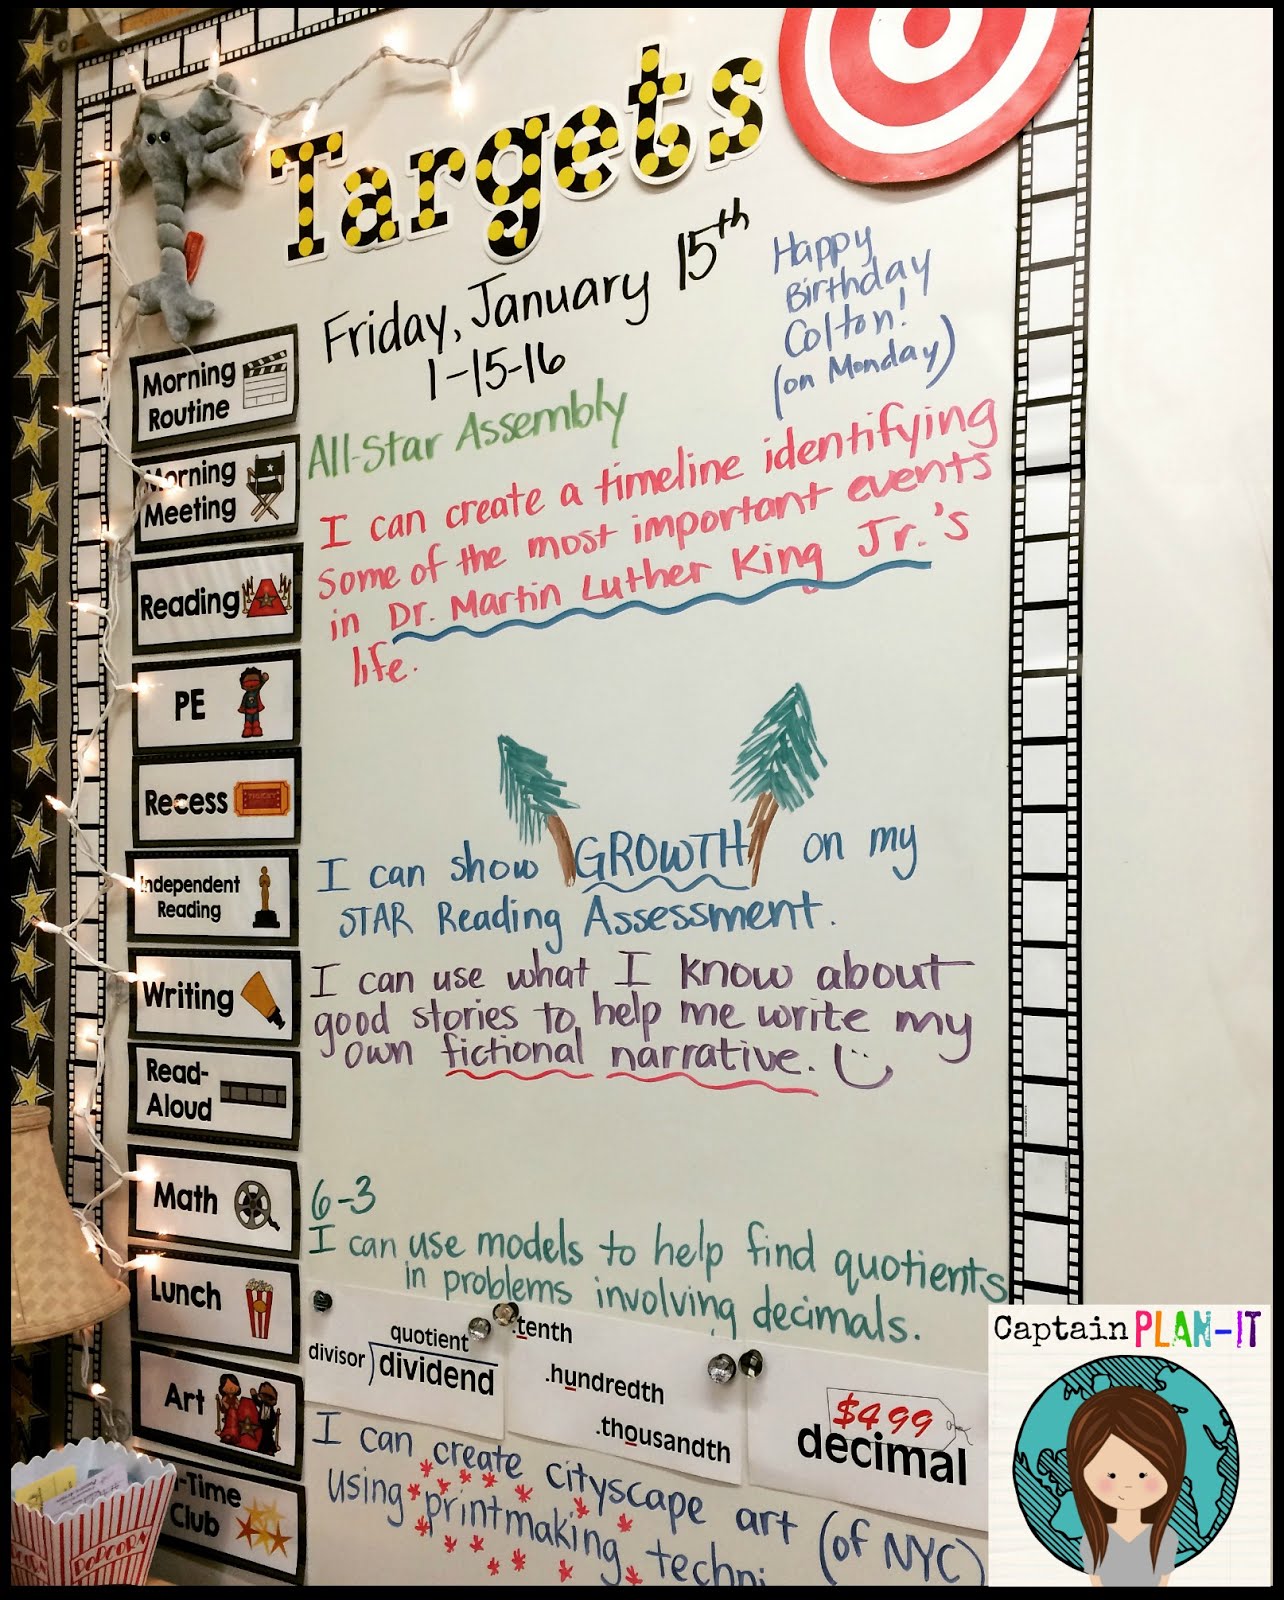 Targets
Friday, January 15th
1-15-16
Happy
Birthday
Colton!
(on Monday)
All-Star Assembly
I can create a timeline identifying
some of the most important events
in Dr. Martin Luther King Jr.'s
life.
I can show GROWTH on my
STAR Reading Assessment.
I can use what I know about
good stories to help me write my
own fictional narrative.
6-3
I can use models to help find quotients
in problems involving decimals.
quotient
divisor dividend
.tenth
.hundredth
.thousandth
$4.99
decimal
I can create cityscape art (of NYC)
using printmaking techni
Morning
Routine
Morning
Meeting
Reading
PE
Recess
Independent
Reading
Writing
Read-
Aloud
Math
Lunch
Art
-Time
Club
POPCORN
Captain PLAN-IT